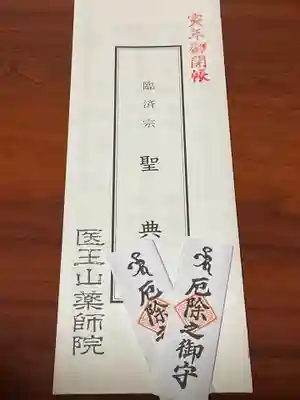 寅年御開帳
臨済宗
聖典
医王山薬師院
厄除之御守
厄除之